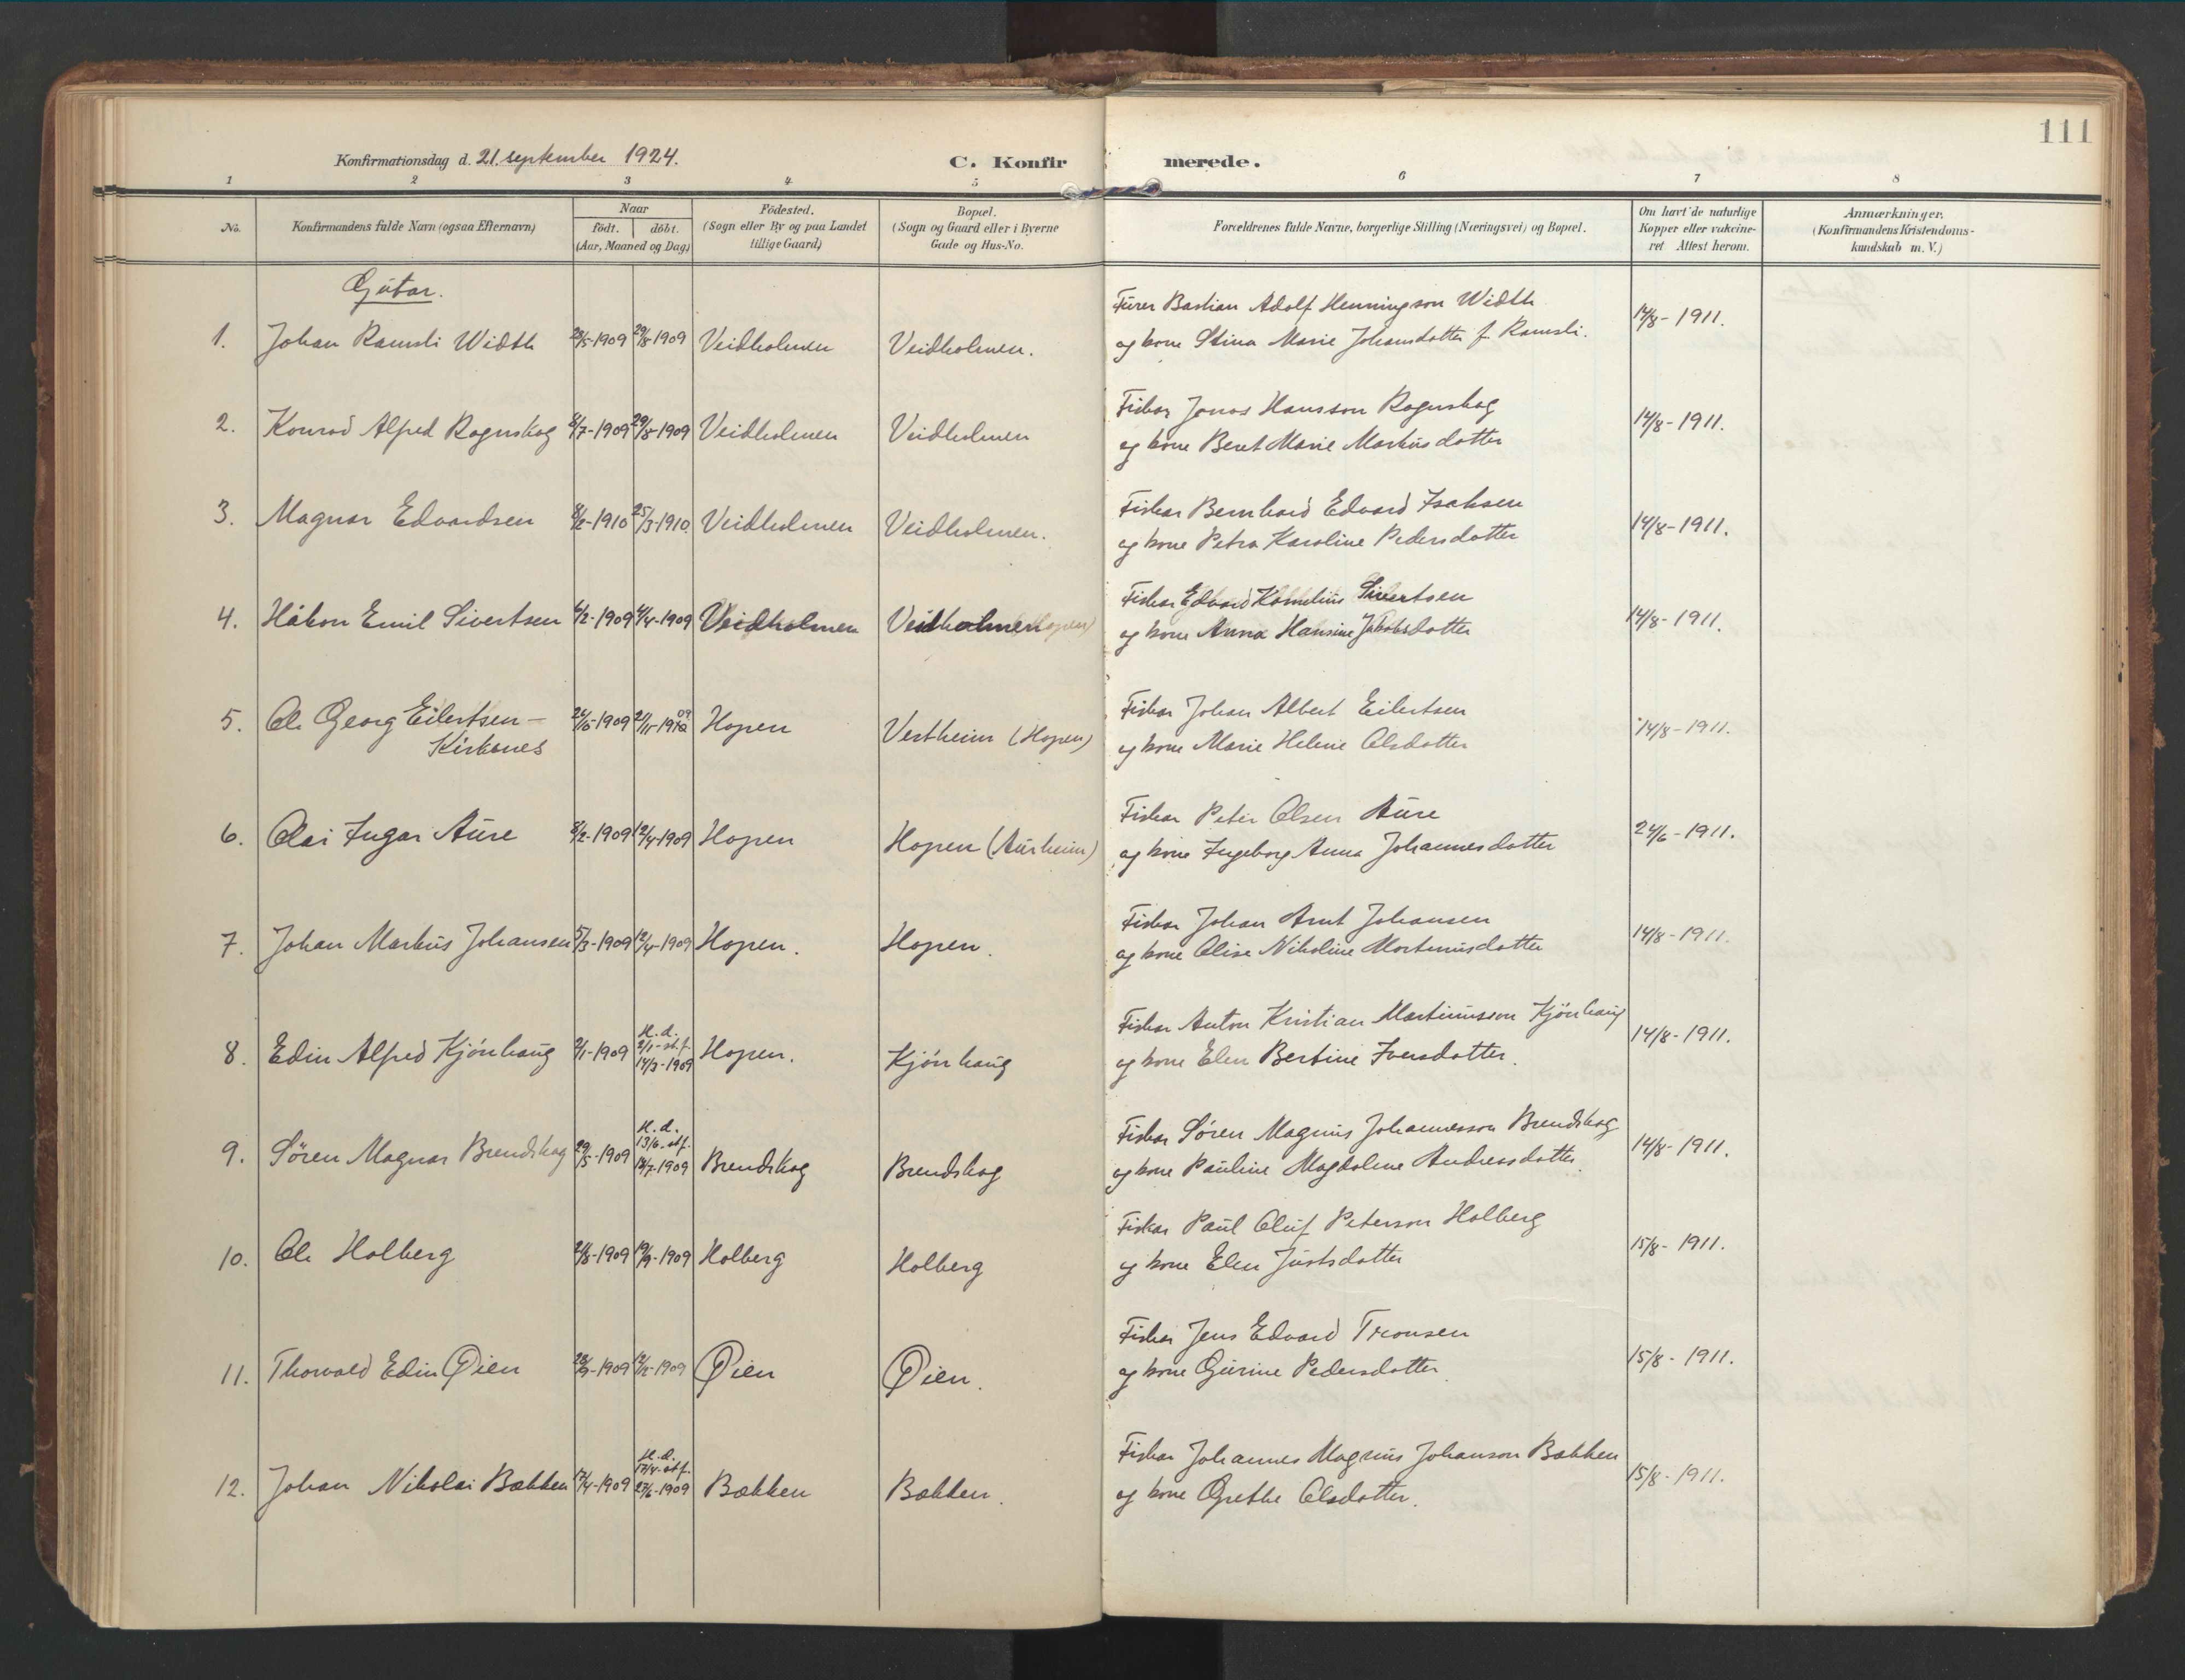 111
Konfirmationsdag d. 21. september 1924.
C. Konfirmerede.
1 2 3 4 5 6 7 8
No.
Konfirmandens fulde Navn (ogsaa Efternavn)
Naar
födt. döbt.
(Aar, Maaned og Dag)
Födested.
(Sogn eller By og paa Landet
tillige Gaard)
Bopæl.
(Sogn og Gaard eller i Byerne
Gade og Hus-No.
Forældrenes fulde Navne, borgerlige Stilling (Næringsvei) og Bopæl.
Om havt de naturlige
Kopper eller vakcine-
ret Attest herom.
Anmærkninger.
(Konfirmandens Kristendoms-
kundskab m. V.)
Gutar.
1. Johan Ramsli Width 28/5-1909 29/8-1909 Veidholmen Veidholmen.
Fürer Bastian Adolf Henningson Width
og kone Stina Marie Johansdotter f. Ramsli.
14/8-1911.
2. Konrad Alfred Rognskog 8/7-1909 29/8-1909 Veidholmen Veidholmen
Fiskar Jonas Hansson Rognskog
og kone Beret Marie Markusdotter
14/8-1911.
3. Magnar Edvardsen 8/2-1910 25/3-1910. Veidholmen Veidholmen.
Fiskar Bernhard Edvard Isaksen
og kone Petra Karoline Pedersdotter
14/8-1911.
4. Håkon Emil Sivertsen 6/2-1909 4/4-1909 Veidholmen Veidholmen
Fiskar Edvard Kornelius Sivertsen
og kone Anna Hansine Jakobsdotter
14/8-1911.
5. Ole Georg Eilertsen-
Kirkenes
26/10-1909 21/11-1909 Hopen Vestheim (Hopen)
Fiskar Johan Albert Eilertsen
og kone Marie Helene Olsdotter
14/8-1911.
6. Olai Ingar Aure 8/2-1909 12/4-1909 Hopen Hopen (Aurheim)
Fiskar Peter Olsen Aure
og kone Ingeborg Anna Johannesdotter
24/6-1911.
7. Johan Markus Johansen 5/3-1909 12/4-1909 Hopen. Hopen.
Fiskar Johan Arnt Johansen
og kone Olise Nikoline Mortenusdotter
14/8-1911.
8. Edin Alfred Kjönhaug 2/1-1909
H. d.
2/1-st.f.
14/3-1909
Hopen. Kjönhaug
Fiskar Anton Kristian Martinusson Kjönhaug
og kone Elen Bertine Iversdotter.
14/8-1911.
9. Sören Magnar Brendskog 29/5-1909
H. d.
13/6-st.f.
18/7-1909
Brendskog Brendskog
Fiskar Sören Magnus Johannesson Brendskog
og kone Pauline Magdalene Andreasdotter.
14/8-1911.
10. Ole Holberg 21/8-1909 19/9-1909 Holberg Holberg
Fiskar Paul Oluf Peterson Holberg
og kone Elen Justsdotter
15/8-1911.
11. Thorvald Edin Øien 28/9-1909 12/12-1909 Øien Øien.
Fiskar Jens Edvard Tronsen
og kone Gurine Pedersdotter
15/8-1911.
12. Johan Nikolai Bækken 17/4-1909
H. d.
17/4-st.f.
27/6-1909
Bækken Bækken.
Fiskar Johannes Magnus Johanson Bækken
og kone Grethe Olsdotter.
15/8-1911.